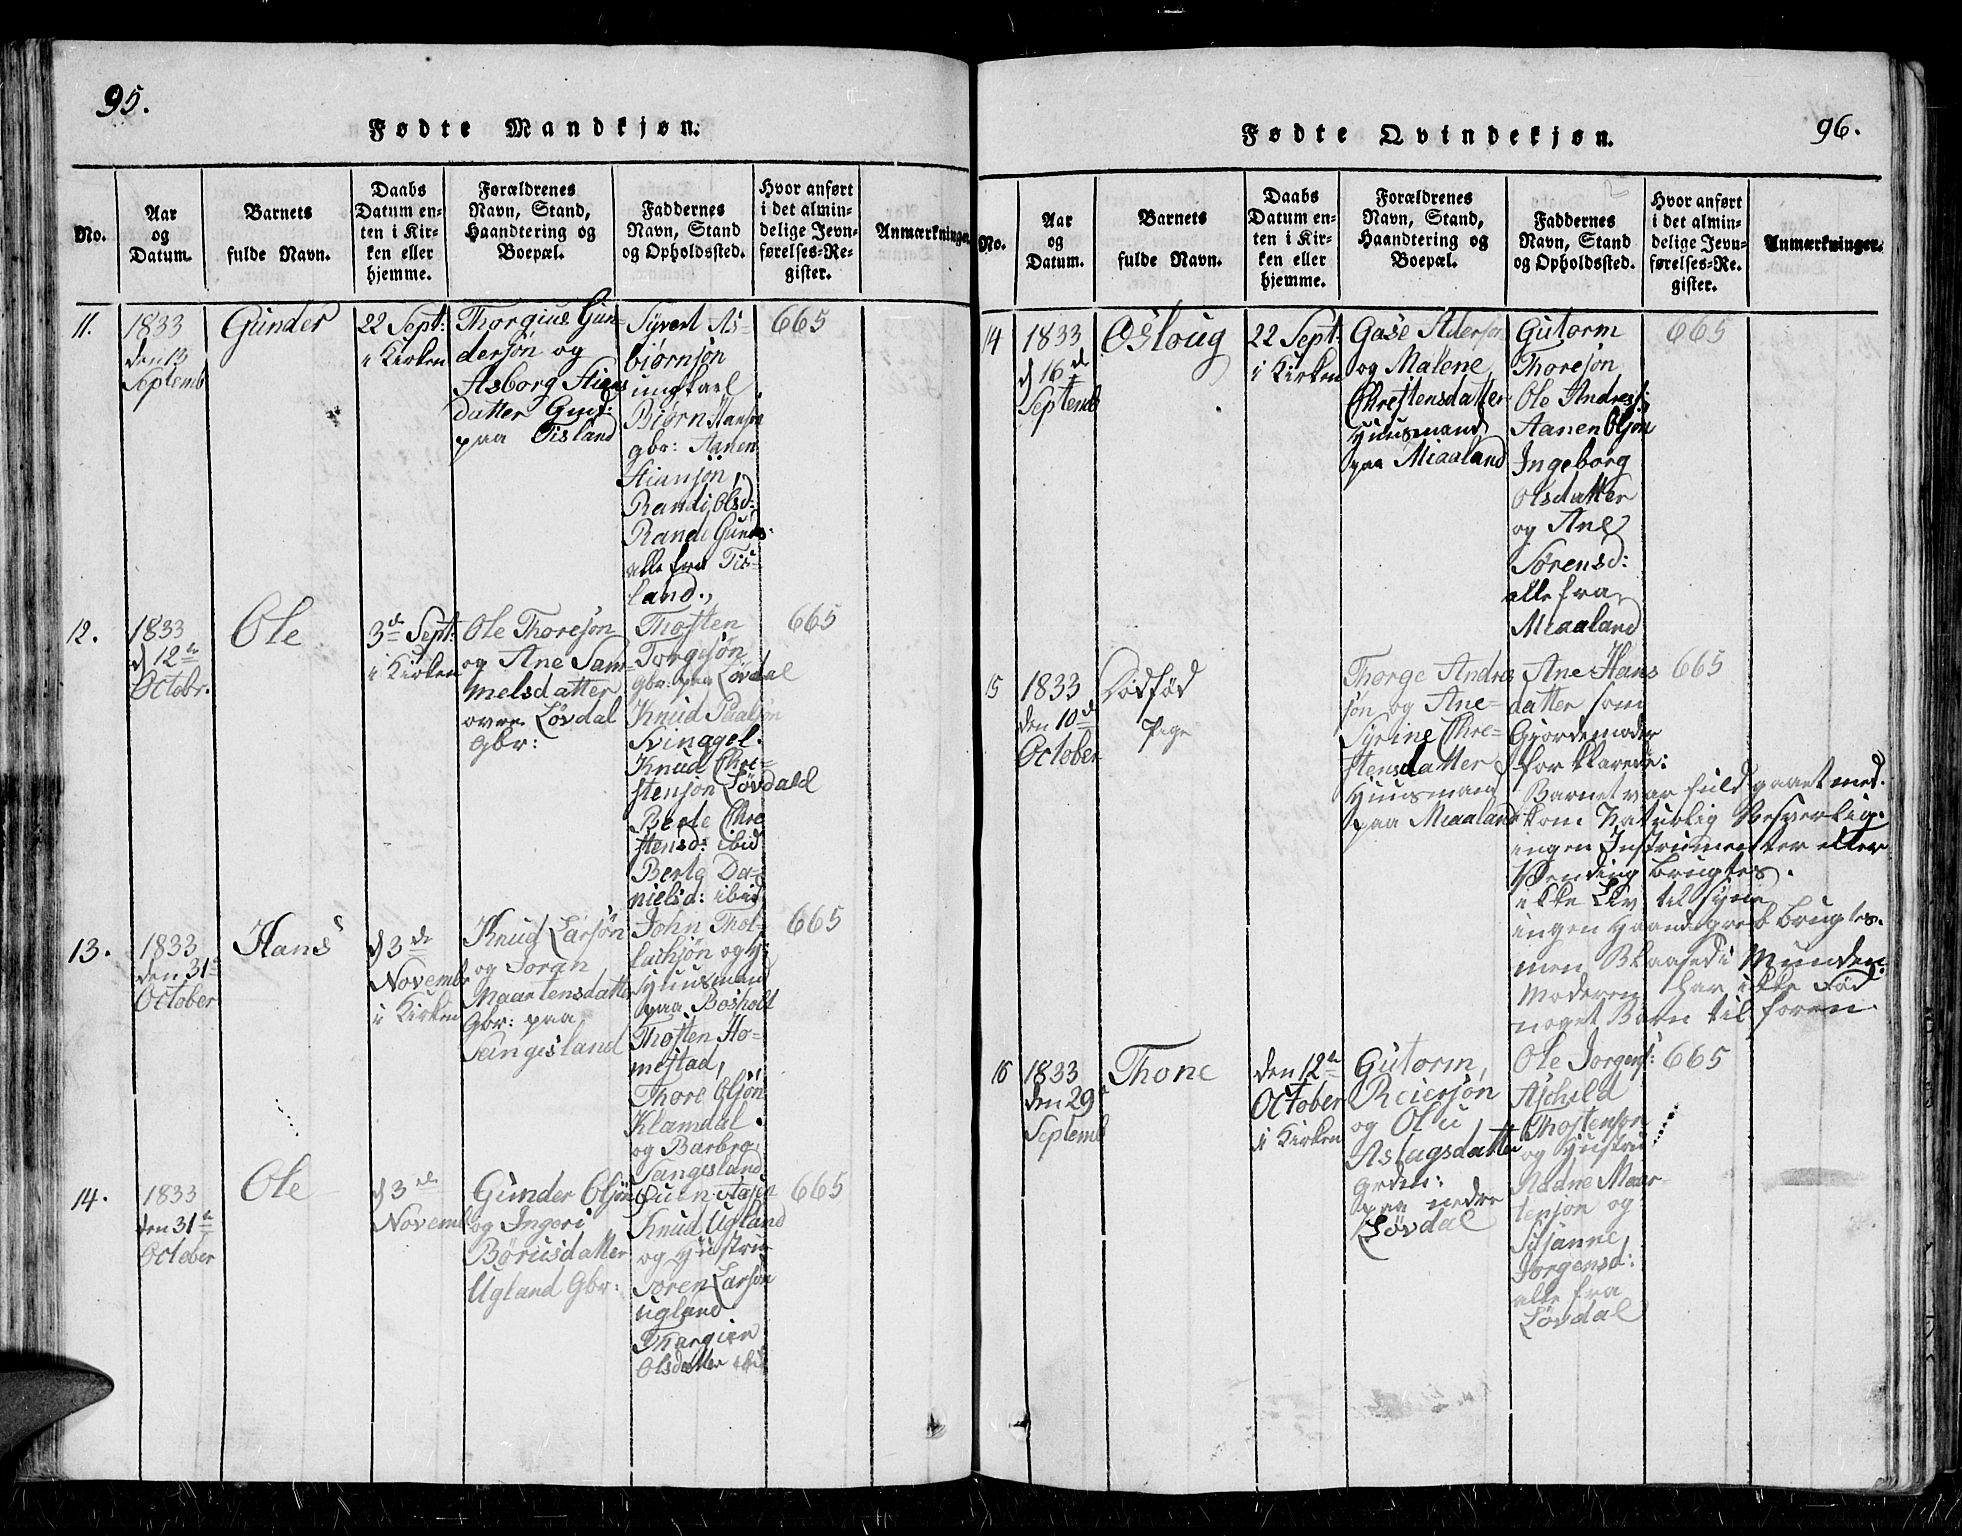 95.
Fødte Mandkjøn.
No.
Aar
og
Datum.
Barnets
fulde Navn.
Daabs
Datum en-
ten i Kir-
ken eller
hjemme.
Forældrenes
Navn, Stand,
Haandtering og
Boepæl.
Faddernes
Navn, Stand
og Opholdssted.
Hvor anført
i det almin-
delige Jevn-
førelses-Re-
gister.
Anmærkninger.
11.
1833
den 13
Septemb
Gunder
22 Sept:
i Kirken
Thorgius Gun-
dersøn og
Asborg Stians
datter Gmd:
paa Tisland
Syvert As-
biørnsøn
ungkarl
Biørn Hansøn
gbr: Aanen
Stiansøn,
Randi Olsd:
Randi Gund:
alle fra Tis-
land.
665
12.
1833
d 12te
Octobr.
Ole
3de Sept:
i Kirken
Ole Thoresøn
og Ane Sam-
melsdatter
øvre Løvdal
Gbr:
Thosten
Torgesøn
Gbr: paa Løvdal
Knud Paalsøn
Svinagel.
Knud Chre-
stensøn Løvdald
Berte Chre
stensd: ibid
Berte Da-
nielsd: ibid
665
13.
1833
den 31te
October
Hans
d 3de
Novembr
i Kirken
Knud Larsøn
og Joran
Maartensdatter
Gbr: paa
Sangesland
John Thol-
lachsøn og
Huusmand
paa Bosholt
Thosten Ho-
mestad,
Thore Olsøn
Klamdal.
og Barbro
Sangesland
665
14.
1833
den 31te
October
Ole
d 3de
Novemb
Gunder Olsøn
og Ingeri
Børusdatter
Ugland Gbr:
Knud Ugland
og Hustru
Søren Larsøn
Ugland
Thargier
Olsdatter ibid
665
96.
Fødte Qvindekjøn.
No.
Aar
og
Datum.
Barnets
fulde Navn.
Daabs
Datum en-
ten i Kir-
ken eller
hjemme.
Forældrenes
Navn, Stand,
Haandtering og
Boepæl.
Faddernes
Navn, Stand
og Opholdssted.
Hvor anført
i det almin-
delige Jevn-
førelses-Re-
gister.
Anmærkninger.
14
1833
d 16de
Septemb
Osloug
22 Sept:
i Kirken
og Malene
Chrestensdatter
Huusmand
paa Miaaland
Gutorm
Thoresøn
Ole Andres:
Aanen Olsøn
Ingeborg
Olsdatter
og Ane
Sørensd:
alle fra
Miaaland
665
15
1833
den 10de
October
Dødfød
Pige
Thorge Andres
søn og Ane-
Syrine Chre-
stensdatter
Huusmand
paa Miaaland
Ane Hans
datter som
Giordemoder
forklarede:
Barnet var fuldgaaet med.
kom Naturlig
ingen Instrumenter eller
Vending brugtes.
ikke til Syne
ingen Haandgreb brugtes.
men Blaased i Munden.
Moderen har ikke Fød
noget Barn til foren
665
16
1833
den 29
Septemb
Thone
den 12te
October
i Kirken
Gutorm
Reiersøn
og Olu
Aslagsdatter
paa nedre
Løvdal
Ole Jorgens:
Aschild
Thostensøn
og Hustru
Aadne Maar-
tensøn og
Susanne
Jorgensd:
alle fra
Løvdal
665